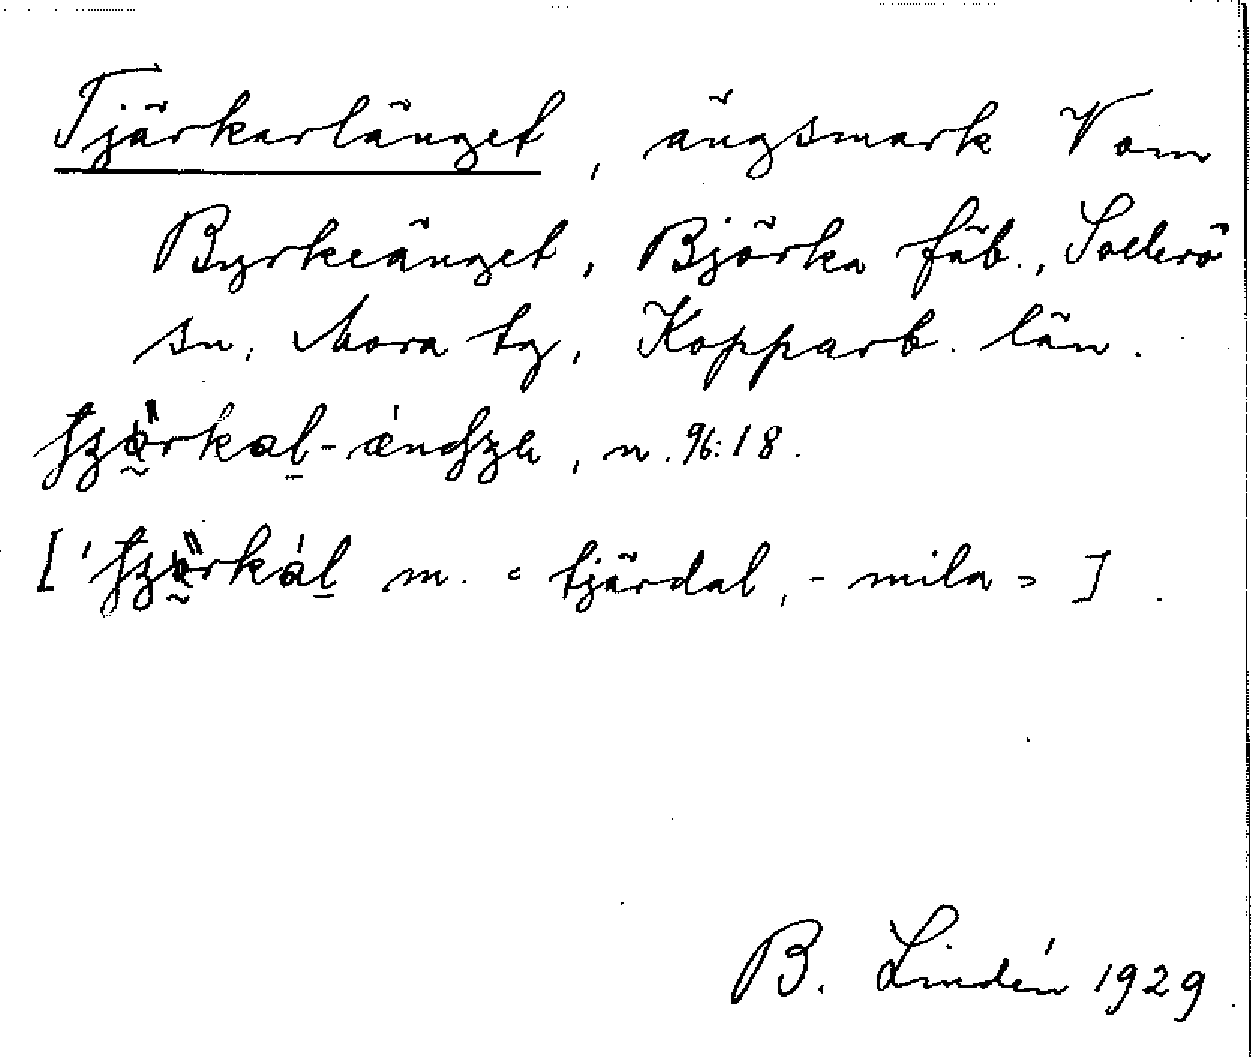 Tjärkarlänget, ängsmark V om
Byrkeänget, Björka fäb., Sollerö
sn, Mora tg, Kopparb. län.
n. 96:18.
m. = tjärdal, - mila = ].
B. Lindén 1929